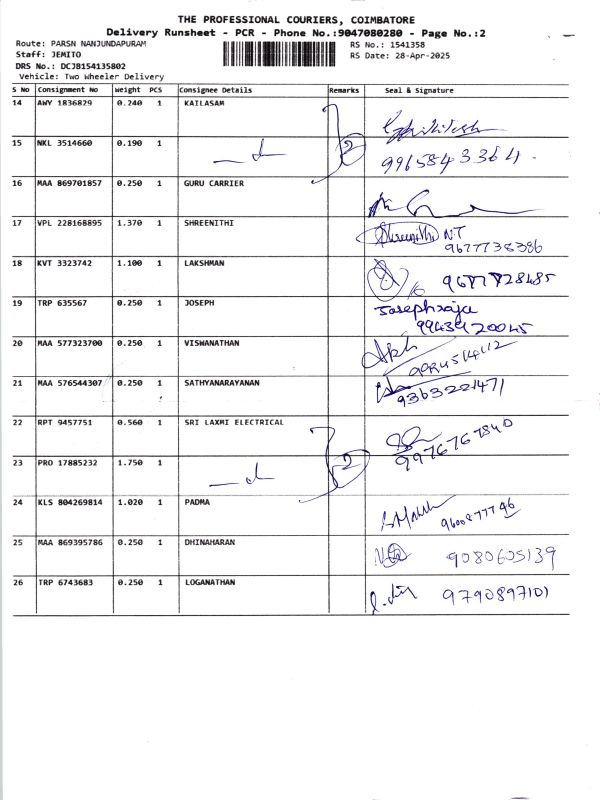 THE PROFESSIONAL COURIERS, COIMBATORE
Delivery Runsheet - PCR - Phone No.:9047080280 - Page No.:2
Route: PARSN NANJUNDAPURAM RS No.: 1541358
Staff: JEMITO RS Date: 28-Apr-2025
DRS No.: DCJB154135802
Vehicle: Two Wheeler Delivery
S No Consignment No Weight PCS Consignee Details Remarks Seal & Signature
14 AWY 1836829 0.240 1 KAILASAM
15 NKL 3514660 0.190 1 2 9965843364
16 MAA 869701857 0.250 1 GURU CARRIER
17 VPL 228168895 1.370 1 SHREENITHI Shreenithi N.T
9677738386
18 KVT 3323742 1.100 1 LAKSHMAN 9677728485
19 TRP 635567 0.250 1 JOSEPH Josephraja
9943920045
20 MAA 577323700 0.250 1 VISWANATHAN
21 MAA 576544307 0.250 1 SATHYANARAYANAN 9363221471
22 RPT 9457751 0.560 1 SRI LAXMI ELECTRICAL 9976767840
23 PRO 17885232 1.750 1 2
24 KLS 804269814 1.020 1 PADMA 9600877796
25 MAA 869395786 0.250 1 DHINAHARAN 9080605139
26 TRP 6743683 0.250 1 LOGANATHAN 9790897101